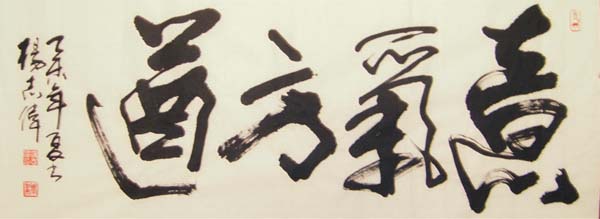 意氣方遒
年夏
楊志偉